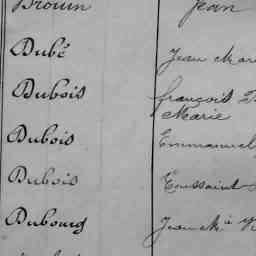 Brouin Jean
Dubé Jean Mari
Dubois françois D
Marie
Dubois Emmanuel
Dubois Toussaint
Dubourg Jean M.ie